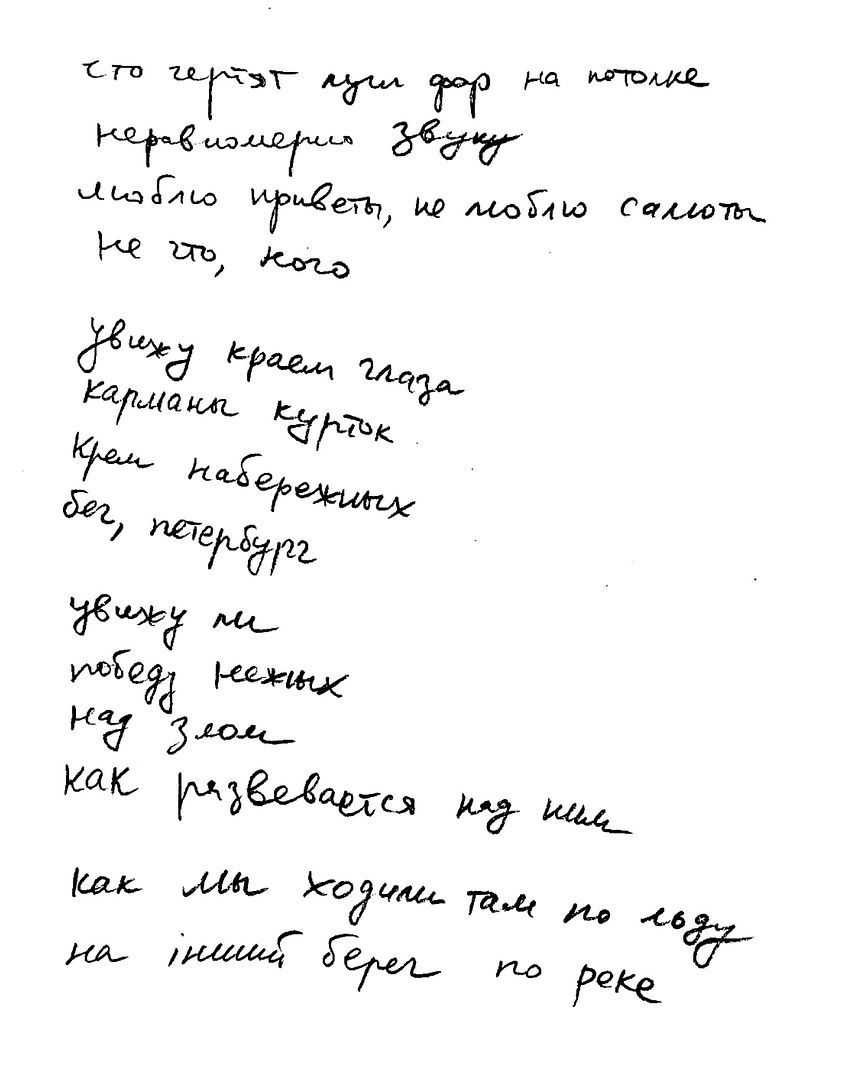 что чертят лучи фар на потолке
неравномерно звуку
люблю приветы, не люблю салюты
не что, кого
увижу краем глаза
карманы курток
крем набережных
бег, петербург
увижу ли
победу нежных
над злом
как развевается над ним
как мы ходили там по льду
на інший берег по реке